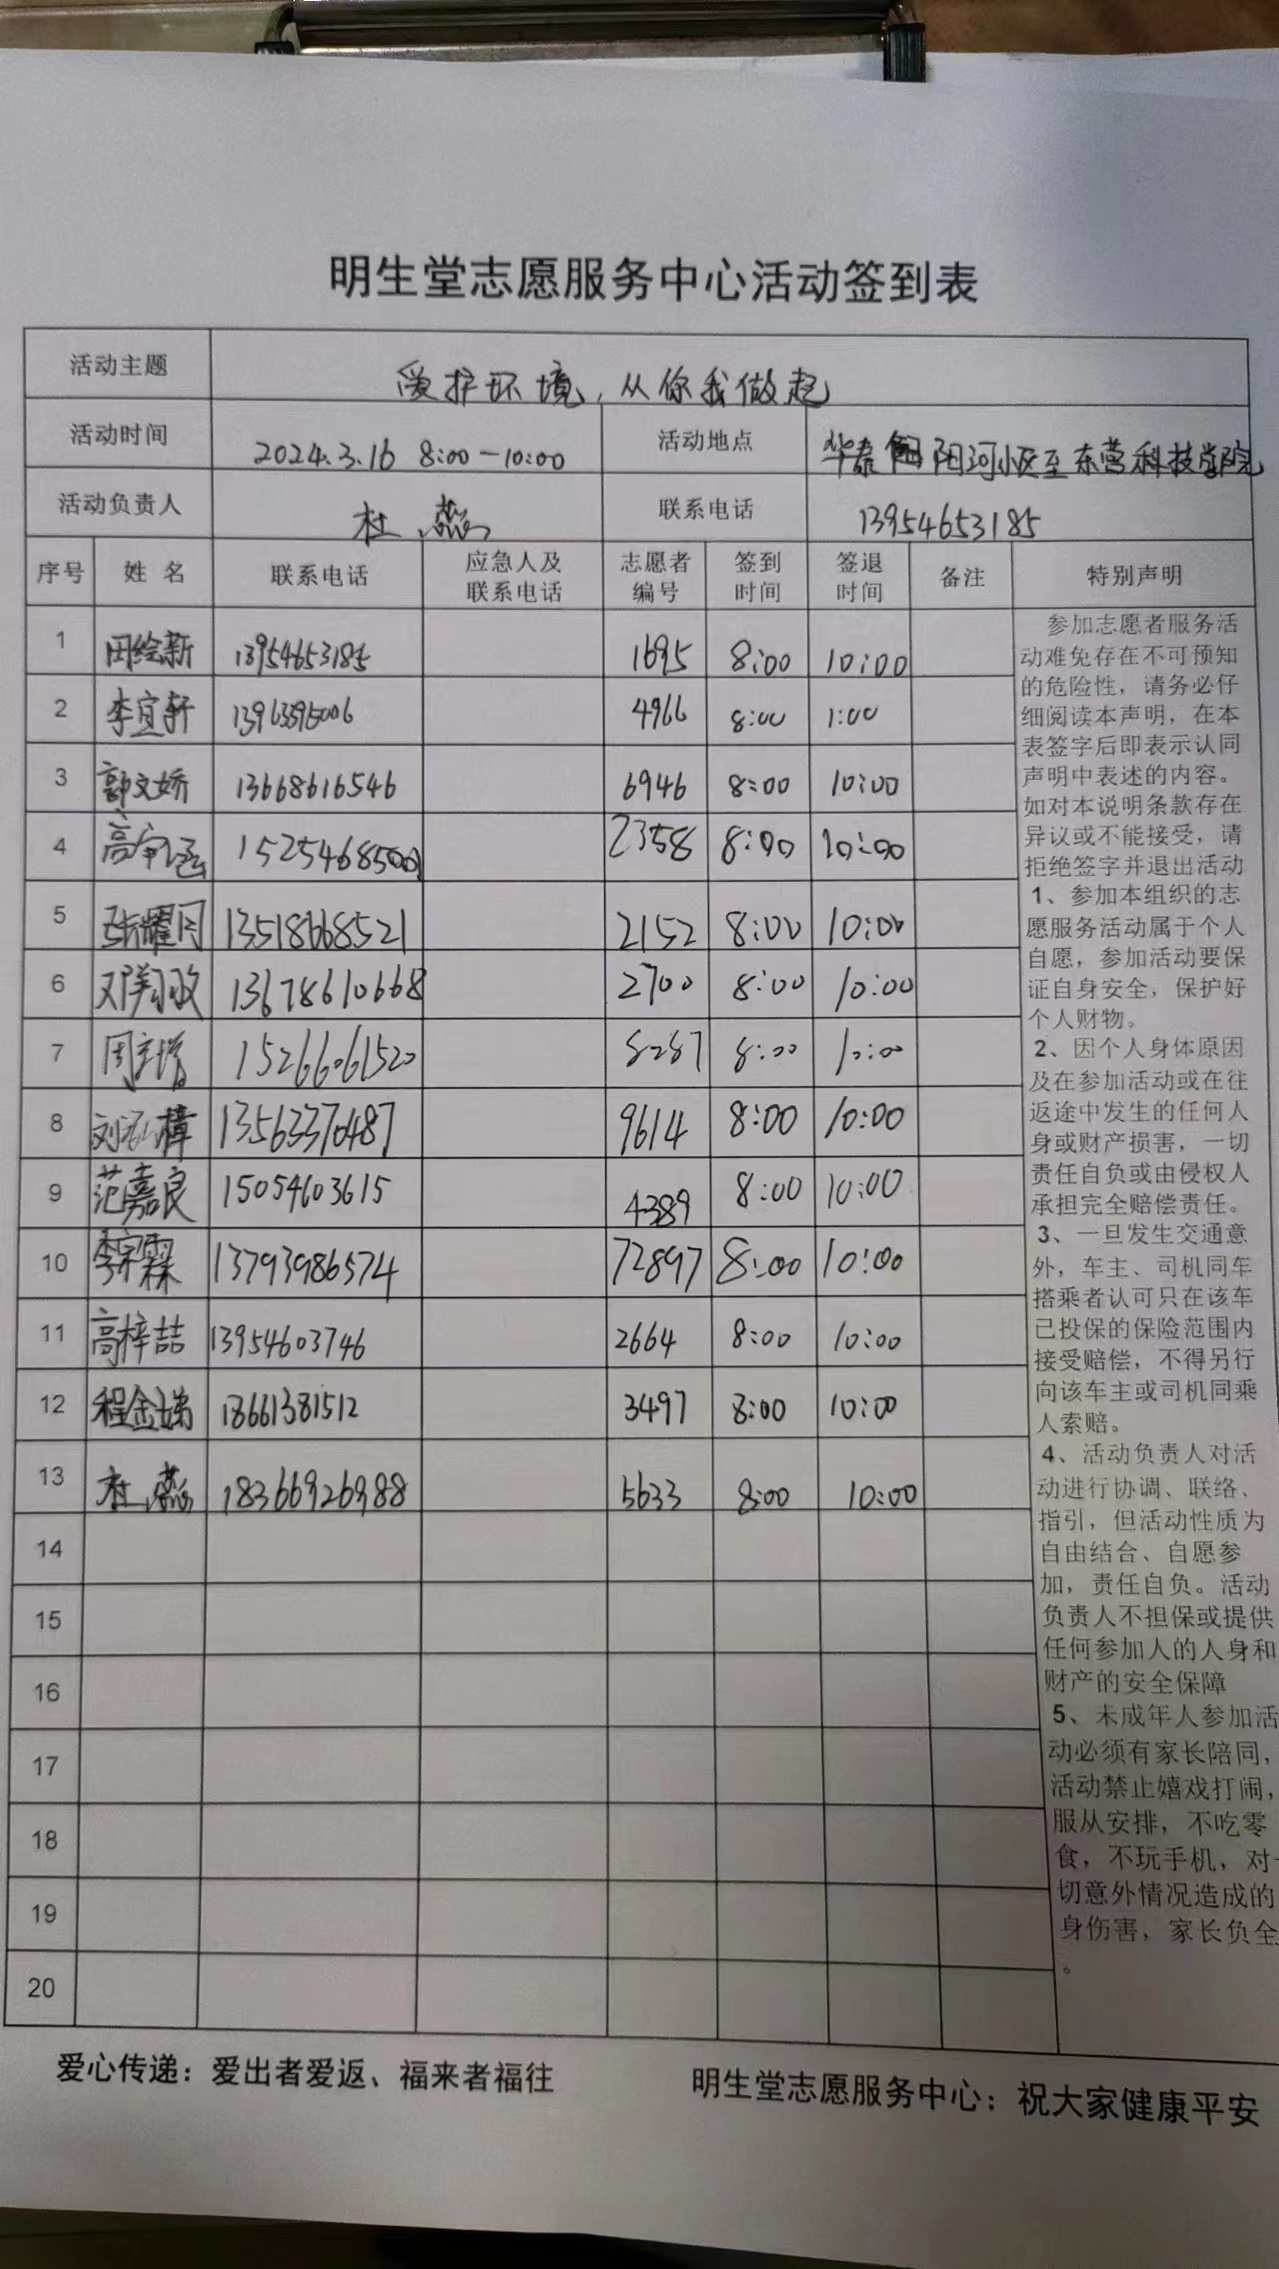 明生堂志愿服务中心活动签到表
活动主题 爱护环境,从你我做起
活动时间 2024.3.16 8:00-10:00 活动地点 华泰 阳河小区至东营科技学院
活动负责人 杜燕 联系电话 13954653185
序号 姓名 联系电话 应急人及联系电话 志愿者编号 签到时间 签退时间 备注 特别声明
1 田绘新 13954653185 1695 8:00 10:00
2 李宜轩 13963895006 4966 8:00 1:00
3 郭文娇 13668616546 6946 8:00 10:00
4 高 1525468500 2358 8:00 10:00
5 张耀月 13518668521 2152 8:00 10:00
6 邓翔 13678610668 2700 8:00 10:00
7 周 15266061520 8287 8:00 10:00
8 刘 樟 13563370487 9614 8:00 10:00
9 范嘉良 15054603615 4389 8:00 10:00
10 李宗霖 13793986574 72897 8:00 10:00
11 高梓喆 13954603746 2664 8:00 10:00
12 程金 18661381512 3497 8:00 10:00
13 杜燕 18366926988 5633 8:00 10:00
14
15
16
17
18
19
20
参加志愿者服务活
动难免存在不可预知
的危险性,请务必仔
细阅读本声明,在本
表签字后即表示认同
声明中表述的内容。
如对本说明条款存在
异议或不能接受,请
拒绝签字并退出活动
1、参加本组织的志
愿服务活动属于个人
自愿,参加活动要保
证自身安全,保护好
个人财物。
2、因个人身体原因
及在参加活动或在往
返途中发生的任何人
身或财产损害,一切
责任自负或由侵权人
承担完全赔偿责任。
3、一旦发生交通意
外,车主、司机同车
搭乘者认可只在该车
已投保的保险范围内
接受赔偿,不得另行
向该车主或司机同乘
人索赔。
4、活动负责人对活
动进行协调、联络、
指引,但活动性质为
自由结合、自愿参
加,责任自负。活动
负责人不担保或提供
任何参加人的人身和
财产的安全保障
5、未成年人参加活
动必须有家长陪同,
活动禁止嬉戏打闹,
服从安排,不吃零
食,不玩手机,对
切意外情况造成的
身伤害,家长负全
。
爱心传递:爱出者爱返、福来者福往 明生堂志愿服务中心:祝大家健康平安